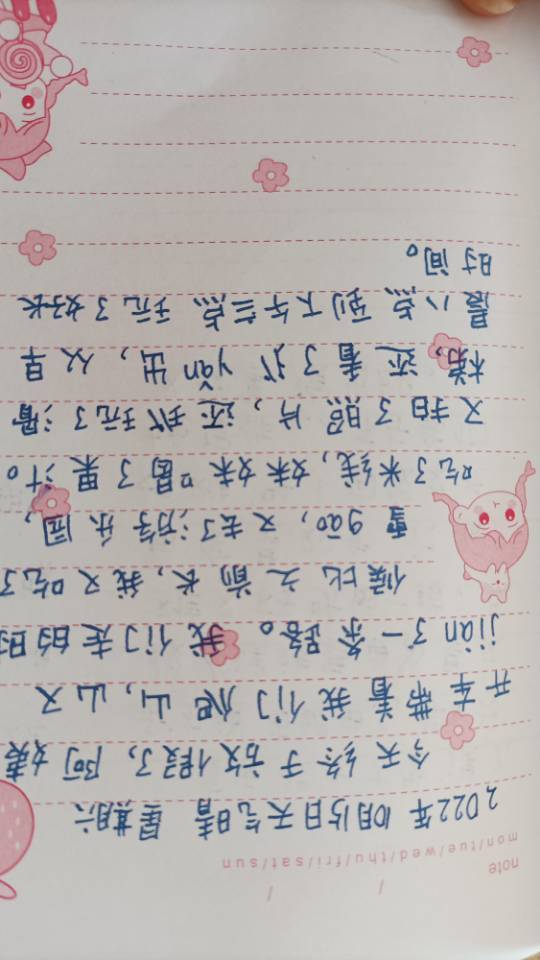 note
mon/tue/wed/thu/fri/sat/sun
2022年10月15日天气晴 星期六
今天终于放假了，阿姨
开车带着我们爬山，山又
jiàn了一条路。我们走的时
候比之前长，我又吃了
雪gāo，又去了游乐园，
吃了米线，妹妹喝了果汁。
又拍了照片，还玩了滑
梯，还看了yǎn出，从早
晨八点到下午三点玩了好长
时间。